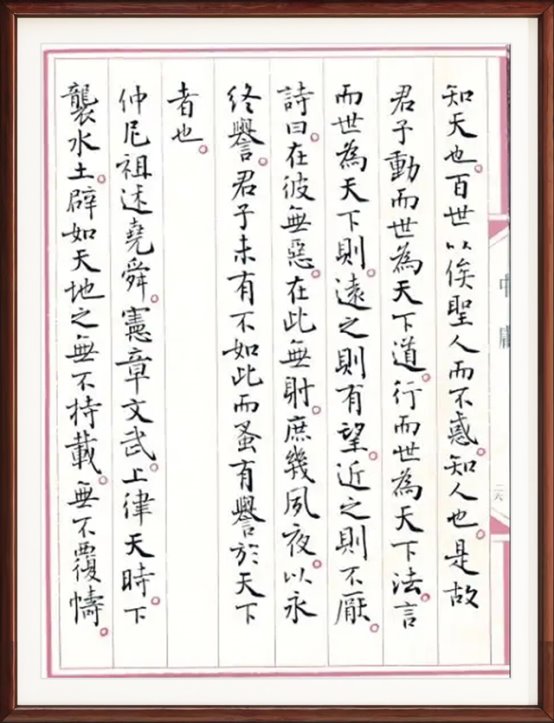 中庸
二六
知天也。百世以俟聖人而不惑。知人也。是故
君子動而世為天下道。行而世為天下法。言
而世為天下則。遠之則有望。近之則不厭。
詩曰。在彼無惡。在此無射。庶幾夙夜。以永
終譽。君子未有不如此而蚤有譽於天下
者也。
仲尼祖述堯舜。憲章文武。上律天時。下
襲水土。辟如天地之無不持載。無不覆幬。